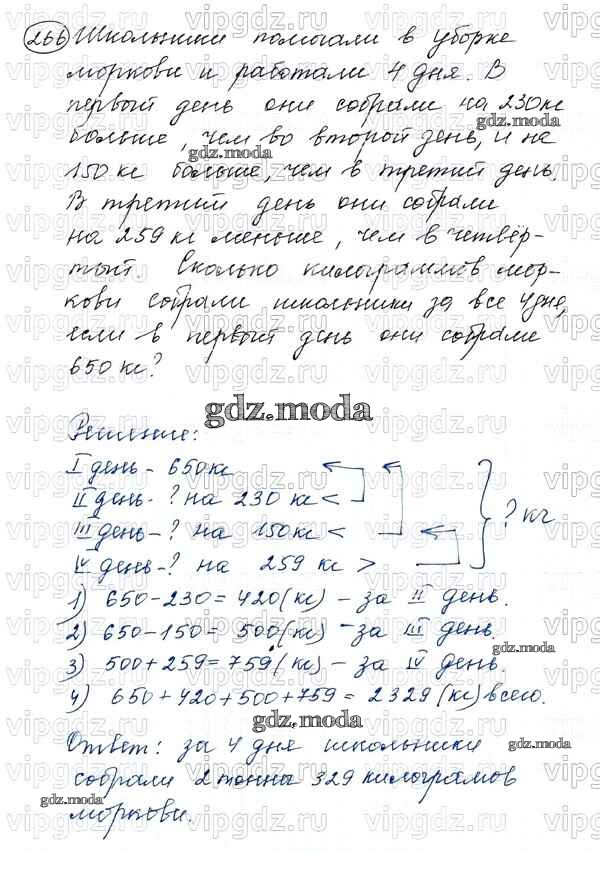 266 Школьники помогали в уборке
моркови и работали 4 дня. В
первый день они собрали на 230 кг
больше, чем во второй день, и на
150 кг больше, чем в третий день.
В третий день они собрали
на 259 кг меньше, чем в четвёр-
тый. Сколько килограммов мор-
кови собрали школьники за все 4 дня,
если в первый день они собрали
650 кг?
gdz.moda
Решение:
I день - 650 кг
II день - ? на 230 кг <
III день - ? на 150 кг <
IV день - ? на 259 кг >
? кг
1) 650-230=420(кг) - за II день.
2) 650-150= 500(кг) - за III день.
3) 500+259=759(кг) - за IV день.
4) 650+420+500+759= 2329(кг) всего.
gdz.moda
Ответ: за 4 дня школьники
собрали 2 тонна 329 килограмов
моркови.